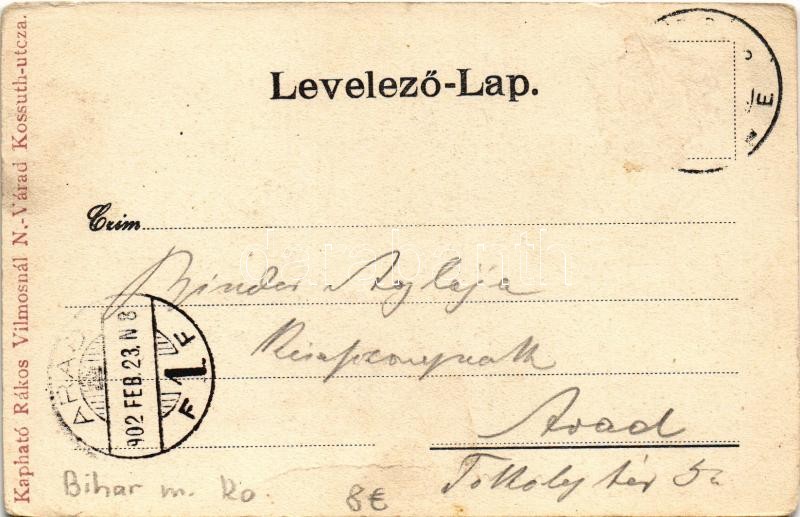 Levelező-Lap.
Czim
Binder Aglája
Arad
Tököly tér 5
Kapható Rákos Vilmosnál N.-Várad Kossuth-utcza.
ARAD
902 FEB. 23. N 8
F 1 F
E
Bihar m. Ro
8€
darabanth